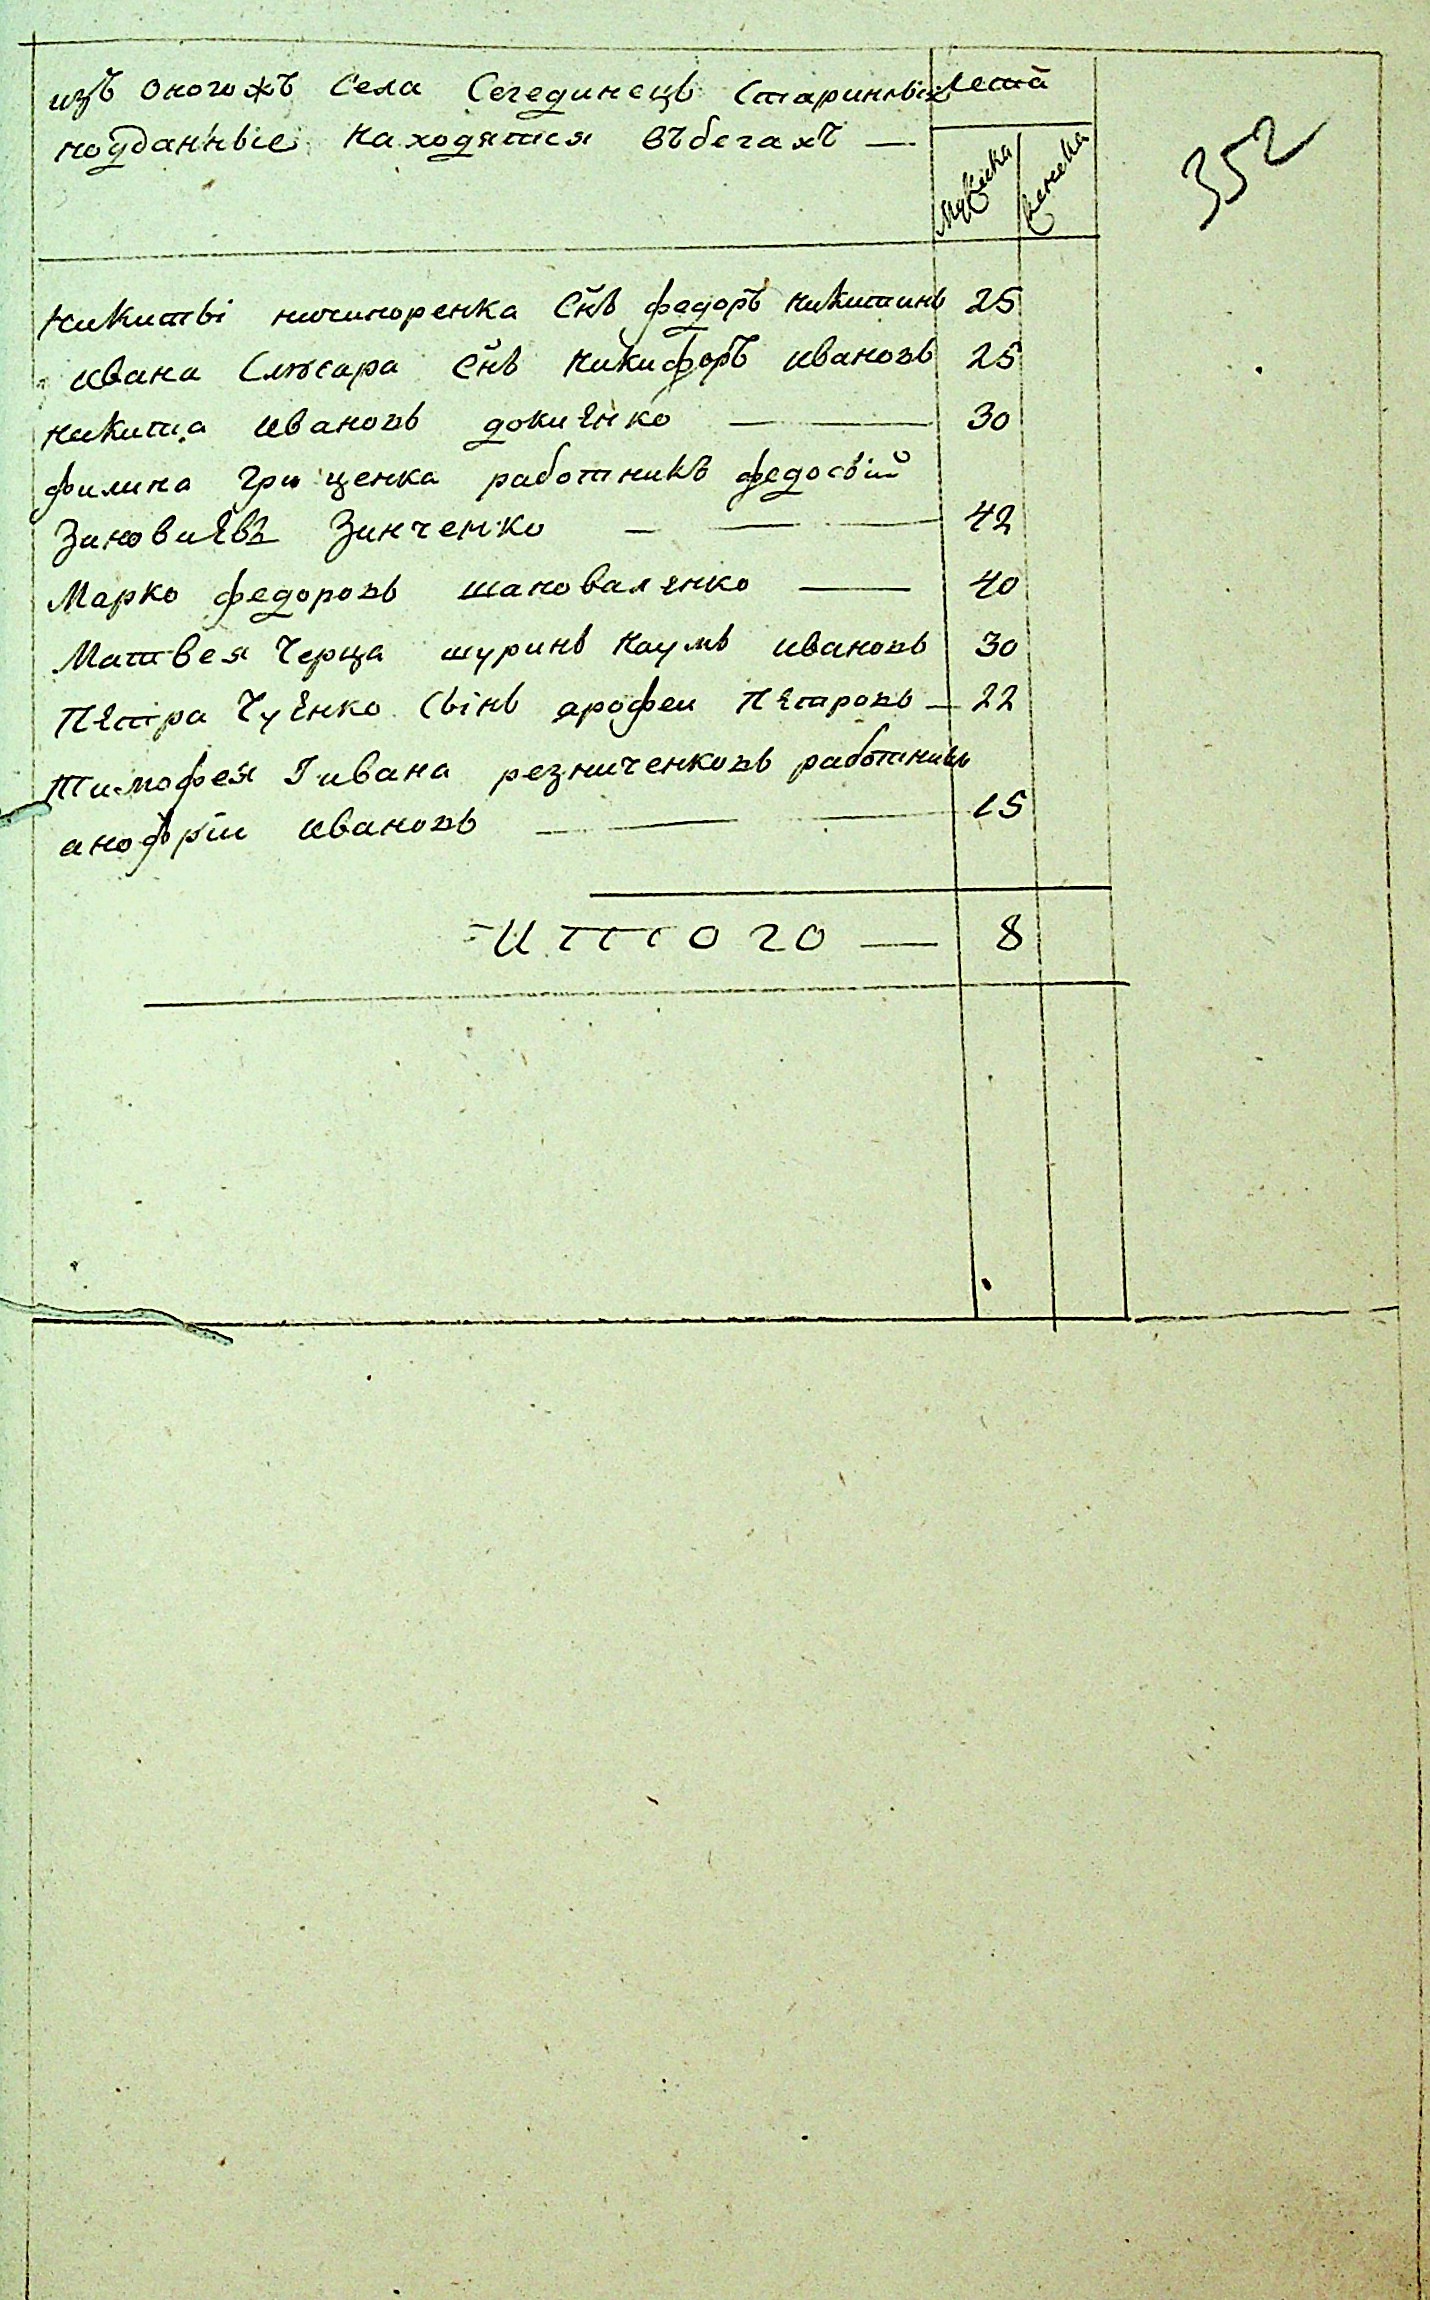 изъ оногожъ села Сегединецъ старинные лета
подданные находятся въ бегахъ —
мужска женска
352
Никиты ничипоренка Снъ федоръ никитинъ 25
ивана Слюсара Снъ никифоръ ивановъ 25
никита ивановъ докиенко — 30
филипа грищенка работникъ федосій
Зиновиевъ Зинченко — 42
Марко федоровъ шаповаленко — 40
Матвея Черца шуринъ наумъ ивановъ 30
Петра Чуенко Сынъ арофеи Петровъ — 22
Тимофея І ивана резниченковъ работникъ
анофріи ивановъ — 15
Итого — 8